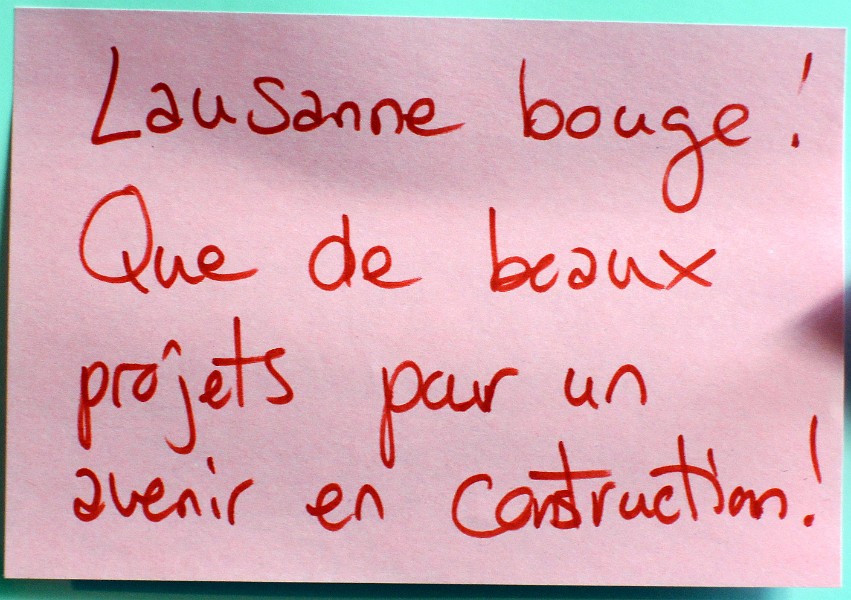 Lausanne bouge !
Que de beaux
projets pour un
avenir en construction !